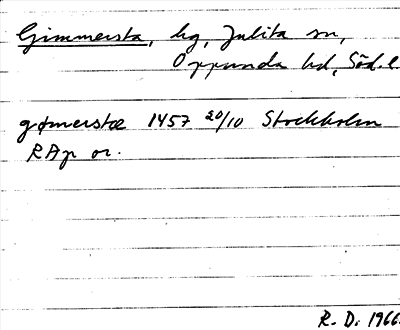 Gimmersta, hg, Julita sn,
Oppunda hd, Söd. l.
gømerstæ 1457 20/10 Stockholm
RAp or.
R. D. 1966.